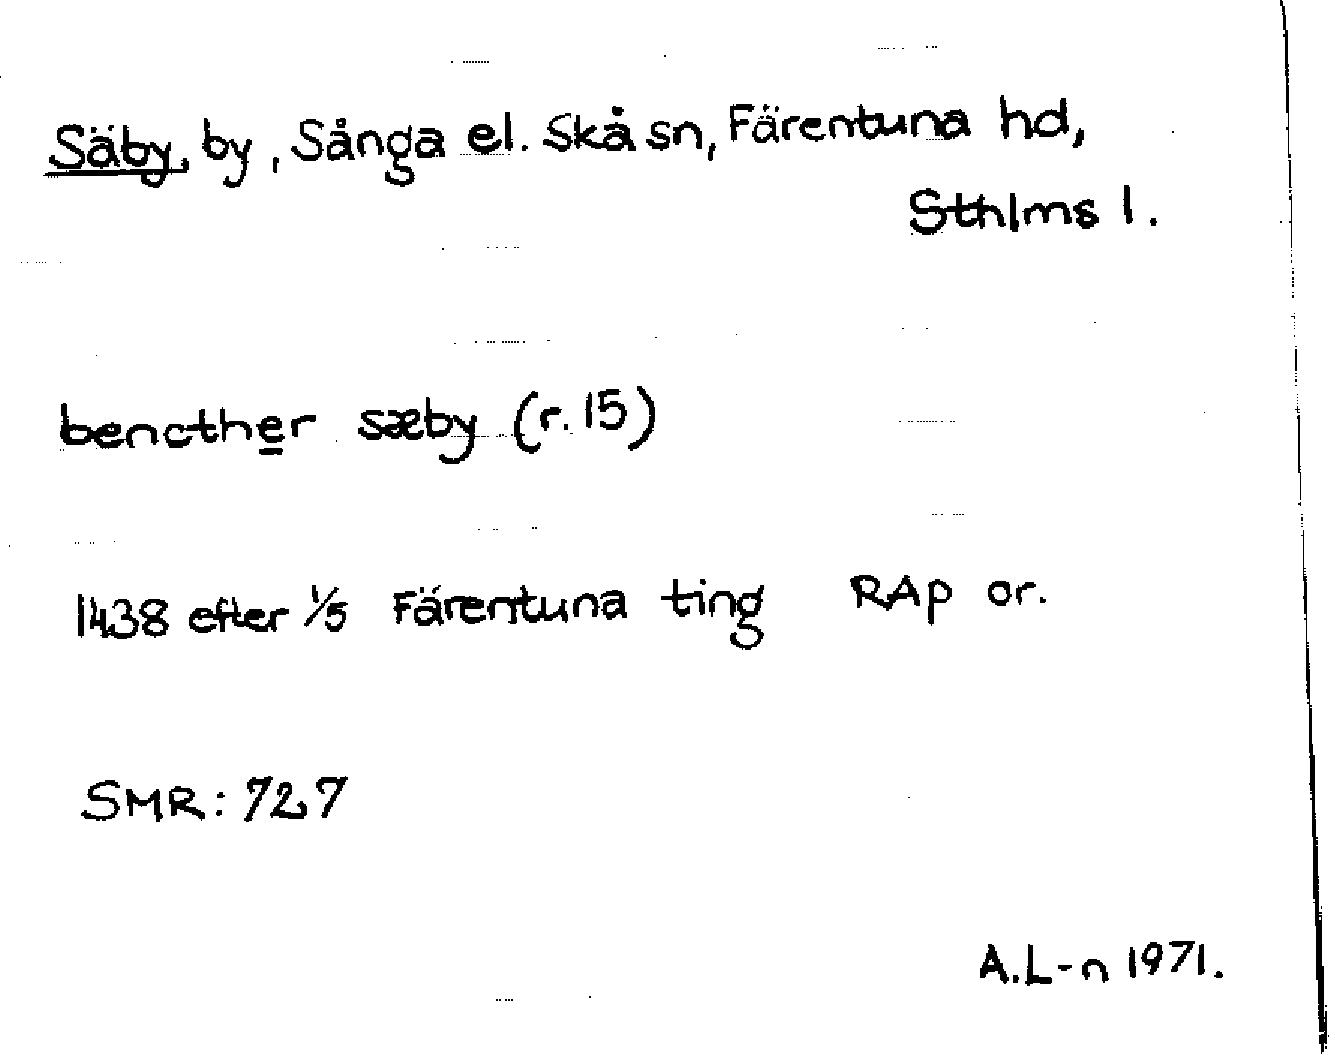 Säby, by, Sånga el. Skå sn, Färentuna hd,
Sthlms l.
bencther sæby (r. 15)
1438 efter 1/5 Färentuna ting RAp or.
SMR: 727
A.L-n 1971.